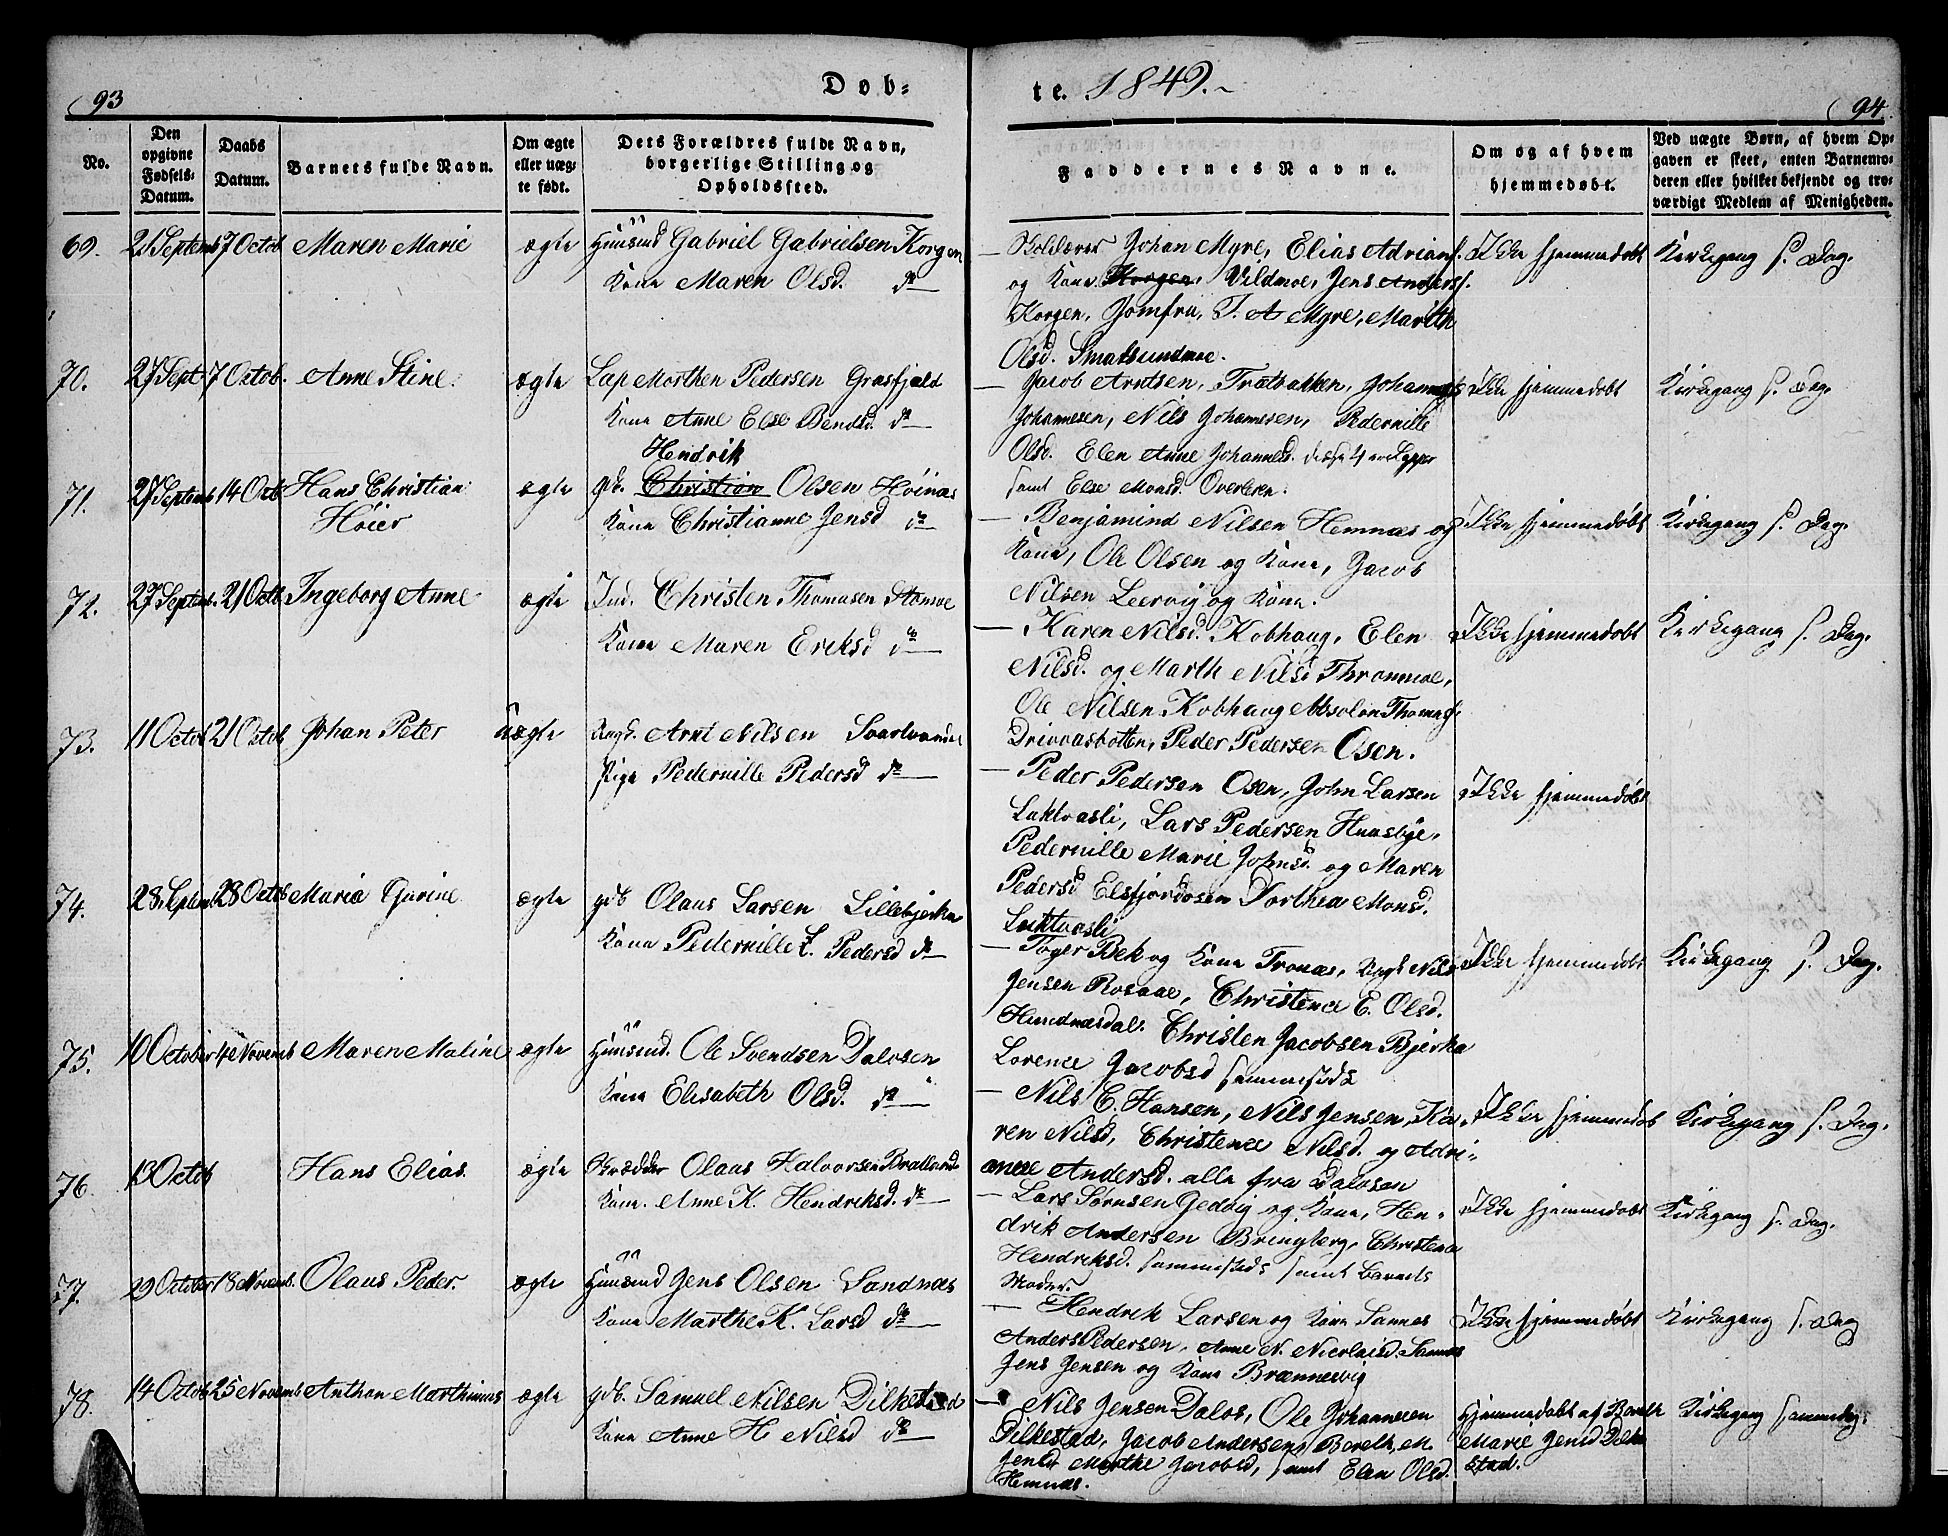 93
Døb-
te. 1849.
94.
No.
Den opgivne Fødsels-Datum.
Daabs Datum.
Barnets fulde Navn.
Om ægte eller uægte født.
Dets Forældres fulde Navn, borgerlige Stilling og Opholdsfted.
Faddernes Navne.
Om og af hvem hjemmedøbt.
Ved uægte Børn, af hvem Opgaven er skeet, enten Barnemoderen eller hvilket bekjendt og troværdigt Medlem af Menigheden.
69. 21 Septemb 7 Octob Maren Marie ægte Huusmd Gabriel Gabrielsen Korgen
Kone Maren Olsd. do
Skolelærer Johan Myre, Elias Adrians. Ikke hjemmedøbt Kirkegang s. Dag.
og Kone Korgen, Vildmoe, Jens Anders.
Korgen, Jomfru, T. A Myre, Marith
Olsd. Smalsundmoe.
70. 27 Sept. 7 Octob. Anne Stine. ægte Lap Morthen Pedersen Grasfjeld
Kone Anne Else Bendsd. do
Jacob Arntsen, Trætbakken, Johannes Ikke hjemmedøbt Kirkegang s. Dag.
Johannesen, Nils Johannesen, Pedernille
Olsd. Elen Anne Johannesd. disse 4 ere Lapper
samt Else Monsd. Overleren.
71. 27 Septemb 14 Octb Hans Christian ægte gdb. Hendrik Christian Olsen Høinæs
Høier Kone Christianne Jensd do
Benjamind Nilsen Hemnæs og Ikke hjemmedøbt Kirkegang s. Dag.
Kone, Ole Olsen og Kone, Jacob
Nilsen Leervig og Kone.
72. 27 Septemb. 21 Octb Ingeborg Anne ægte Ind. Christen Thomasen
Kone Maren Eriksd do
Karen Nilsd. Kobhaug, Elen Ikke hjemmedøbt Kirkegang s. Dag.
Nilsd. og Marth Nilsd Thronmoe,
Ole Nilsen Kobhaug Absolon Thomas.
Drivaasbotten, Peder Pedersen Osen.
73. 11 Octob 21 Octob Johan Peter uægte Ungk. Arnt Nilsen Svartvandet
Pige Pedernille Pedersd do
Peder Pedersen Osen, John Larsen Ikke hjemmedøbt
Luktvasli, Lars Pedersen Huusbye,
Pedernille Marie Johnsd. og Maren
Pedersd Elsfjordosen Dorthea Monsd.
Luktvasli
74. 28 Septemb 28 Octob Maria Gurine ægte gdb Olaus Larsen Lillebjerka
Kone Pedernille L. Pedersd do
Toger Bek og Kone Tronæs, Ungk Nils Ikke hjemmedøbt Kirkegang s. Dag.
Jensen Rosaae, Christence E. Olsd.
Hundnæsdal. Christen Jacobsen Bjerka
Lorence Jacobsd sammesteds
75. 10 October 4 Novemb Maren Maline ægte Huusmd. Ole Svendsen Dalosen
Kone Elisabeth Olsd. do
Nils C. Hansen, Nils Jensen, Ka- Ikke hjemmedøb Kirkegang s. Dag.
ren Nilsd, Christence Nilsd. og Adri-
anne Andersd. alle fra Dalosen
76. 13 Octob Hans Elias. ægte Skrædder Olaus Halvorsen
Kone. Anne K. Hendriksd. do
Lars Sørnsen Gedvig og Kone, Hen- Ikke hjemmedøbt Kirkegang s. Dag.
drik Andersen Bringberg, Christence
Hendriksd. sammesteds samt Barnets
Moder.
77. 29 October 18 Novemb. Olaus Peder. ægte Huusmd Jens Olsen Sandnæs
Kone Marthe K. Larsd do
Hendrik Larsen og Kone Sannæs Ikke hjemmedøbt Kirkegang s. Dag
Anders Pedersen, Anne N. Nicolaisd. Sannæs
Jens Jensen og Kone Brænnesvig
78. 14 Octob 25 Novemb Anthon Marthinus ægte gdb. Samuel Nilsen Dilkestad
Kone Anne H Nilsd do
Nils Jensen Dalos, Ole Johannesen Hjemmedøbt af Bereth Kirkegang samme Dag.
Dilkestad, Jacob Andersen, Bereth M. Marie Jensd Dilke
Jensd Marthe Jacobsd, samt Elen Olsd. stad.
Hemnæs.